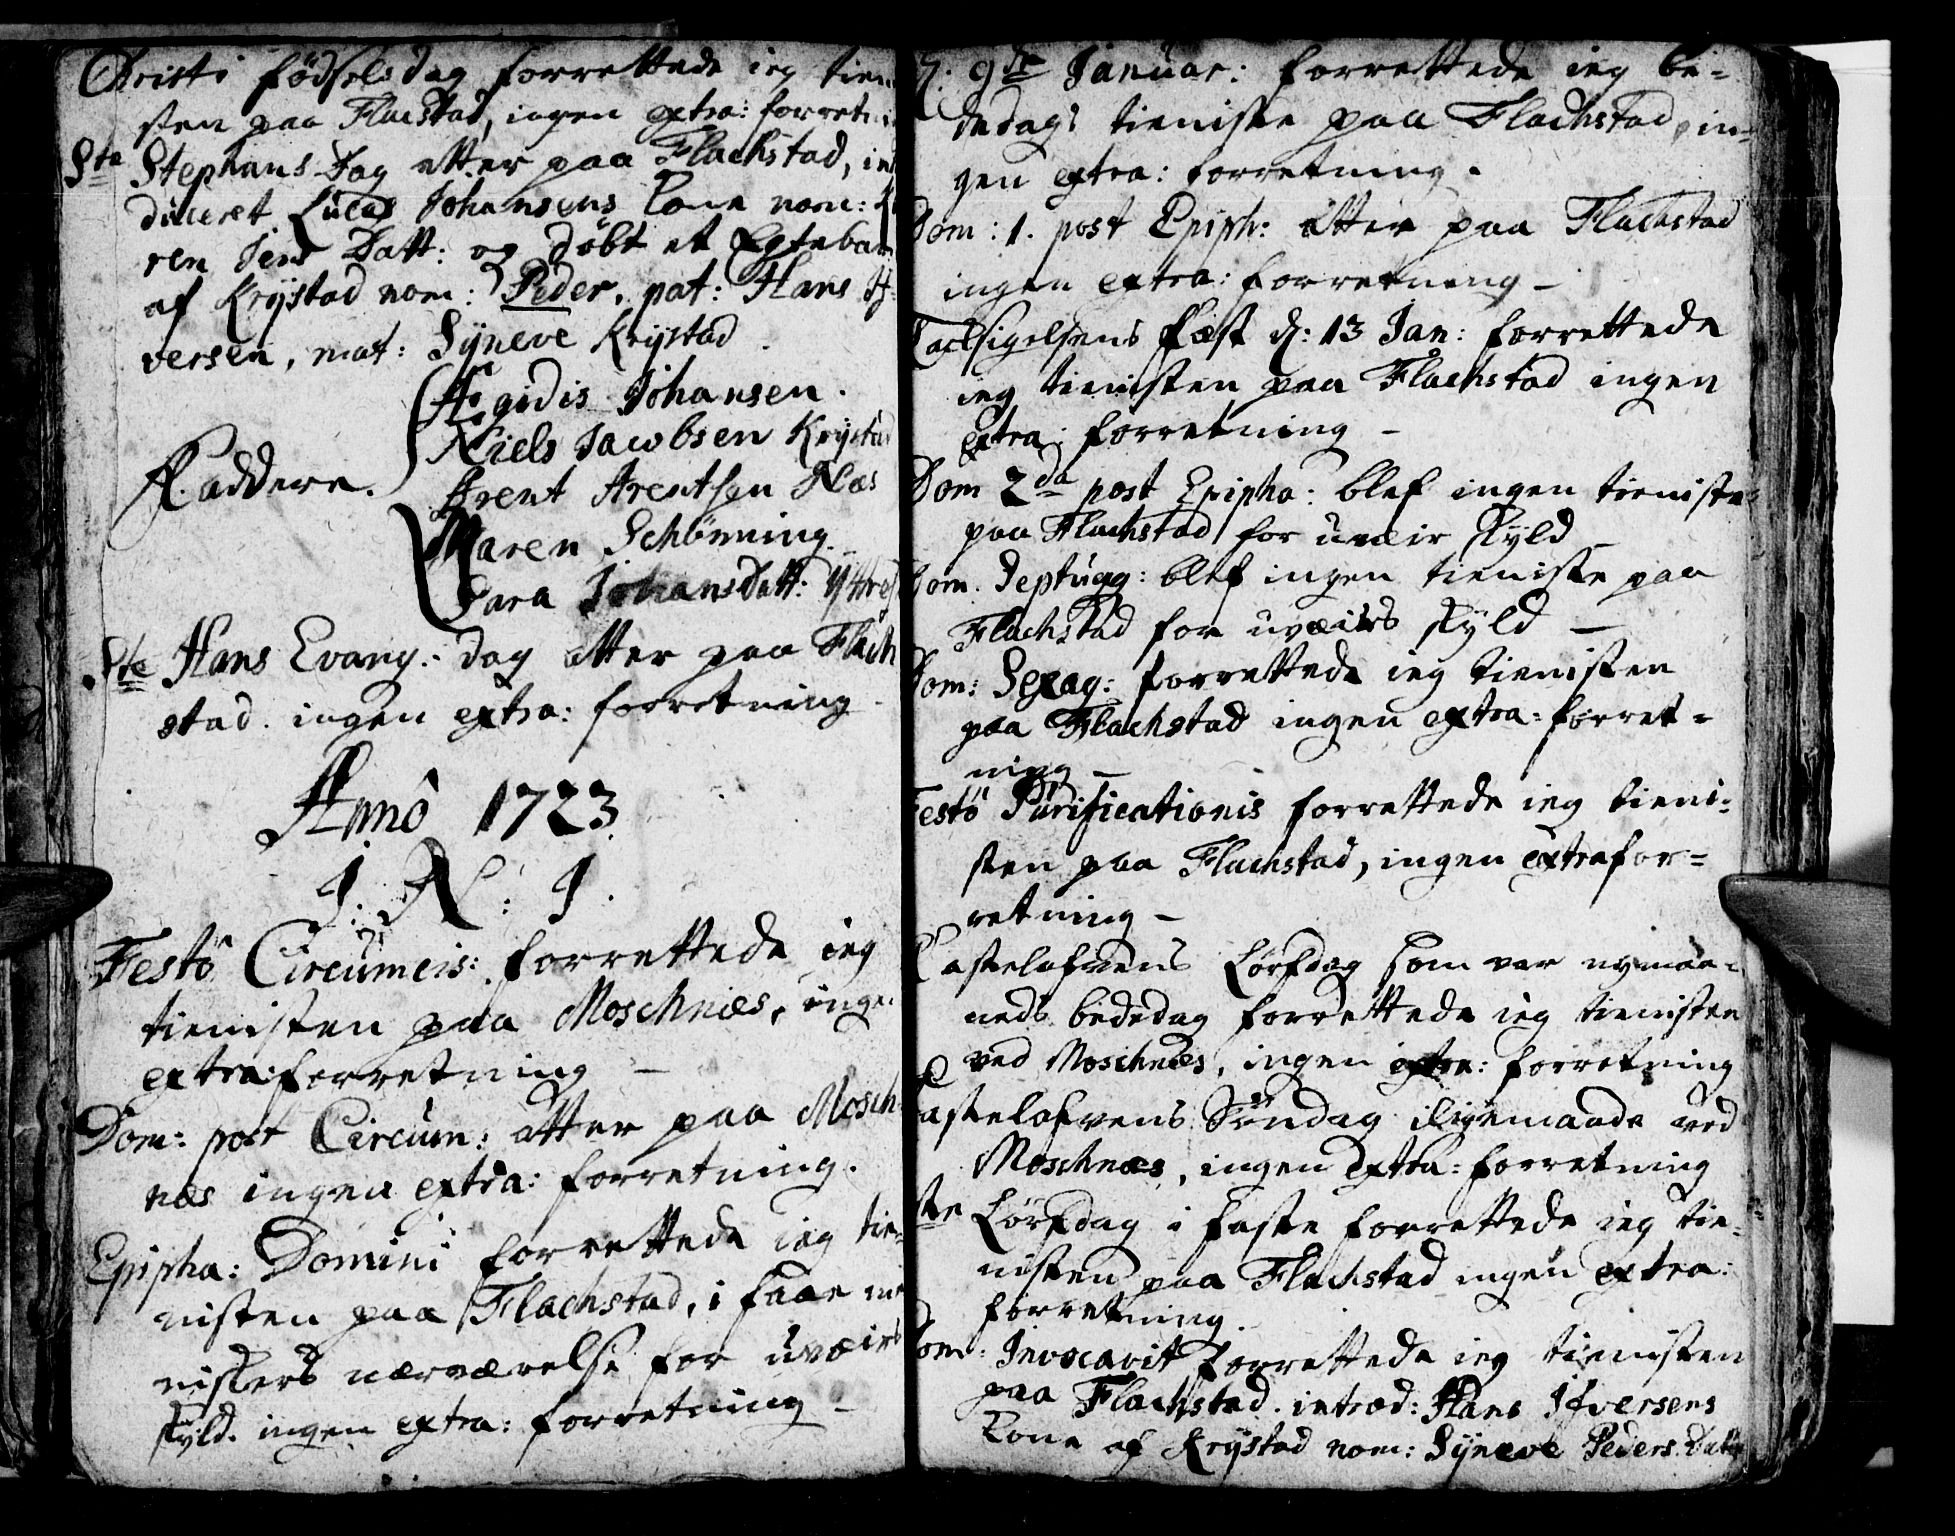 Christi fødselsdag forrettede ieg tien
sten paa Flacstad, ingen extra: forretni
Ste Stephans Dag atter paa Flachstad, in
duceret Lucas Johansens Kone nom:
ren Jens Datt: og døbt et Egtebarn
af Krystad nom: Peder. pat: Hans If
versen, mat: Syneve Krystad
Ægidis Johansen.
Niels Jacobsen Krystad
Faddere. Arent Arentsen Næs
Maren Schønning
Sara JohansDatt:
Ste Hans Evang: dag atter paa Flach
stad. ingen extra: forretning.
Anno 1723.
J. N: J.
Festo Circumcis: forrettede ieg
tienisten paa Moschnæs, inge
extra forretning –
Dom: post Circum: atter paa Mosch
næs ingen extra: forretning.
Epipha: Domini forrettede ieg tie-
nisten paa Flachstad, i faae me
niskers nærværelse for uveirs
skyld. ingen extra: forretning –
d. 9de Januar: forrettede ieg be-
dedags tieniste paa Flachstad, in-
gen extra: forretning.
Dom: 1. post Epiph: atter paa Flachstad
ingen extra: forretning –
Tacksigelsens fæst d: 13 Jan: forrettede
ieg tienisten paa Flachstad ingen
extra: forretning –
Dom 2da post Epipha: blef ingen tieniste
paa Flachstad for uveir skyld –
Dom. Septuag: blef ingen tieniste paa
Flachstad for uveirs skyld –
Dom: Sexag: forrettede ieg tienisten
paa Flachstad ingen extra: forret-
ning –
Festo Purificationis forrettede ieg tieni-
sten paa Flachstad, ingen extrafor-
retning –
Fastelafvens Lørfdag som var nymaa-
neds bededag forrettede ieg tienisten
ved Moschnæs, ingen extra: forretning
Fastelafvens Søndag iligemaade ved
Moschnæs, ingen extra: forretning
ste Lørfdag i faste forrettede ieg tie-
nisten paa Flachstad ingen extra:
forretning.
Dom: Invocavit forrettede ieg tienisten
paa Flachstad. introd: Hans Ifversens
Kone af Krystad nom: Syneve Peders Datt